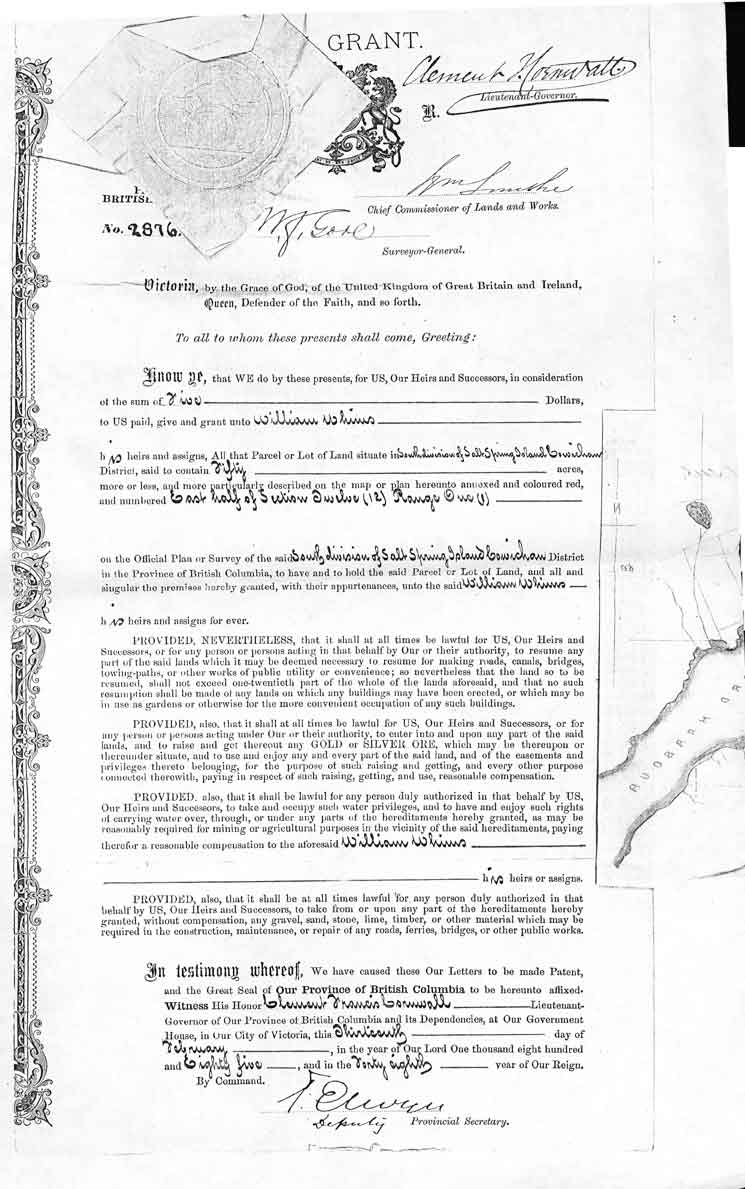 GRANT.
Clement F. Cornwall
Lieutenant-Governor.
R.
BRITISH
Wm Smithe
Chief Commissioner of Lands and Works.
No. 2876.
W. S. Gore
Surveyor-General.
Victoria, by the Grace of God, of the United Kingdom of Great Britain and Ireland,
Queen, Defender of the Faith, and so forth.
To all to whom these presents shall come, Greeting:
Know ye, that WE do by these presents, for US, Our Heirs and Successors, in consideration
of the sum of Five Dollars,
to US paid, give and grant unto William Whims
his heirs and assigns, All that Parcel or Lot of Land situate in South division of Salt Spring Island Cowichan
District, said to contain Fifty acres,
more or less, and more particularly described on the map or plan hereunto annexed and coloured red,
and numbered East half of Section Twelve (12) Range One (1)
on the Official Plan or Survey of the said South division of Salt Spring Island Cowichan District
in the Province of British Columbia, to have and to hold the said Parcel or Lot of Land, and all and
singular the premises hereby granted, with their appurtenances, unto the said William Whims
his heirs and assigns for ever.
PROVIDED, NEVERTHELESS, that it shall at all times be lawful for US, Our Heirs and
Successors, or for any person or persons acting in that behalf by Our or their authority, to resume any
part of the said lands which it may be deemed necessary to resume for making roads, canals, bridges,
towing-paths, or other works of public utility or convenience; so nevertheless that the land so to be
resumed, shall not exceed one-twentieth part of the whole of the lands aforesaid, and that no such
resumption shall be made of any lands on which any buildings may have been erected, or which may be
in use as gardens or otherwise for the more convenient occupation of any such buildings.
PROVIDED, also, that it shall at all times be lawful for US, Our Heirs and Successors, or for
any person or persons acting under Our or their authority, to enter into and upon any part of the said
lands, and to raise and get thereout any GOLD or SILVER ORE, which may be thereupon or
thereunder situate, and to use and enjoy any and every part of the said land, and of the easements and
privileges thereto belonging, for the purpose of such raising and getting, and every other purpose
connected therewith, paying in respect of such raising, getting, and use, reasonable compensation.
PROVIDED. also, that it shall be lawful for any person duly authorized in that behalf by US,
Our Heirs and Successors, to take and occupy such water privileges, and to have and enjoy such rights
of carrying water over, through, or under any parts of the hereditaments hereby granted, as may be
reasonably required for mining or agricultural purposes in the vicinity of the said hereditaments, paying
therefor a reasonable compensation to the aforesaid William Whims
his heirs or assigns.
PROVIDED, also, that it shall be at all times lawful for any person duly authorized in that
behalf by US, Our Heirs and Successors, to take from or upon any part of the hereditaments hereby
granted, without compensation, any gravel, sand, stone, lime, timber, or other material which may be
required in the construction, maintenance, or repair of any roads, ferries, bridges, or other public works.
In testimony whereof, We have caused these Our Letters to be made Patent,
and the Great Seal of Our Province of British Columbia to be hereunto affixed.
Witness His Honor Clement Francis Cornwall Lieutenant-
Governor of Our Province of British Columbia and its Dependencies, at Our Government
House, in Our City of Victoria, this Thirteenth day of
February, in the year of Our Lord One thousand eight hundred
and Eighty five, and in the Forty eighth year of Our Reign.
By Command.
T. Elwyn
Deputy Provincial Secretary.
N